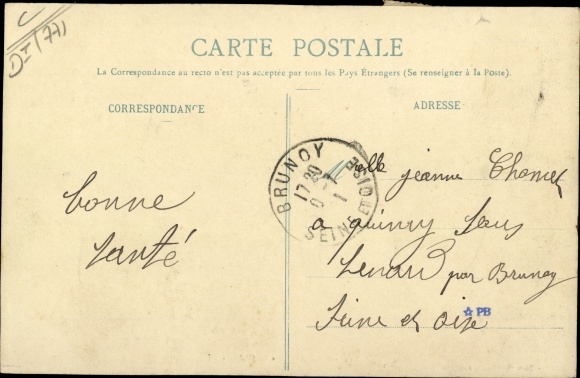 DT (77)
CARTE POSTALE
La Correspondance au recto n'est pas acceptée par tous les Pays Étrangers (Se renseigner à la Poste).
CORRESPONDANCE
ADRESSE
bonne
santé
BRUNOY
17 30
SEINE ET OISE
Melle jeanne
a quincy sous
Senard par Brunoy
Seine et oise
☆ PB